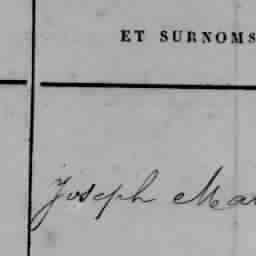 ET SURNOMS
Joseph Mar